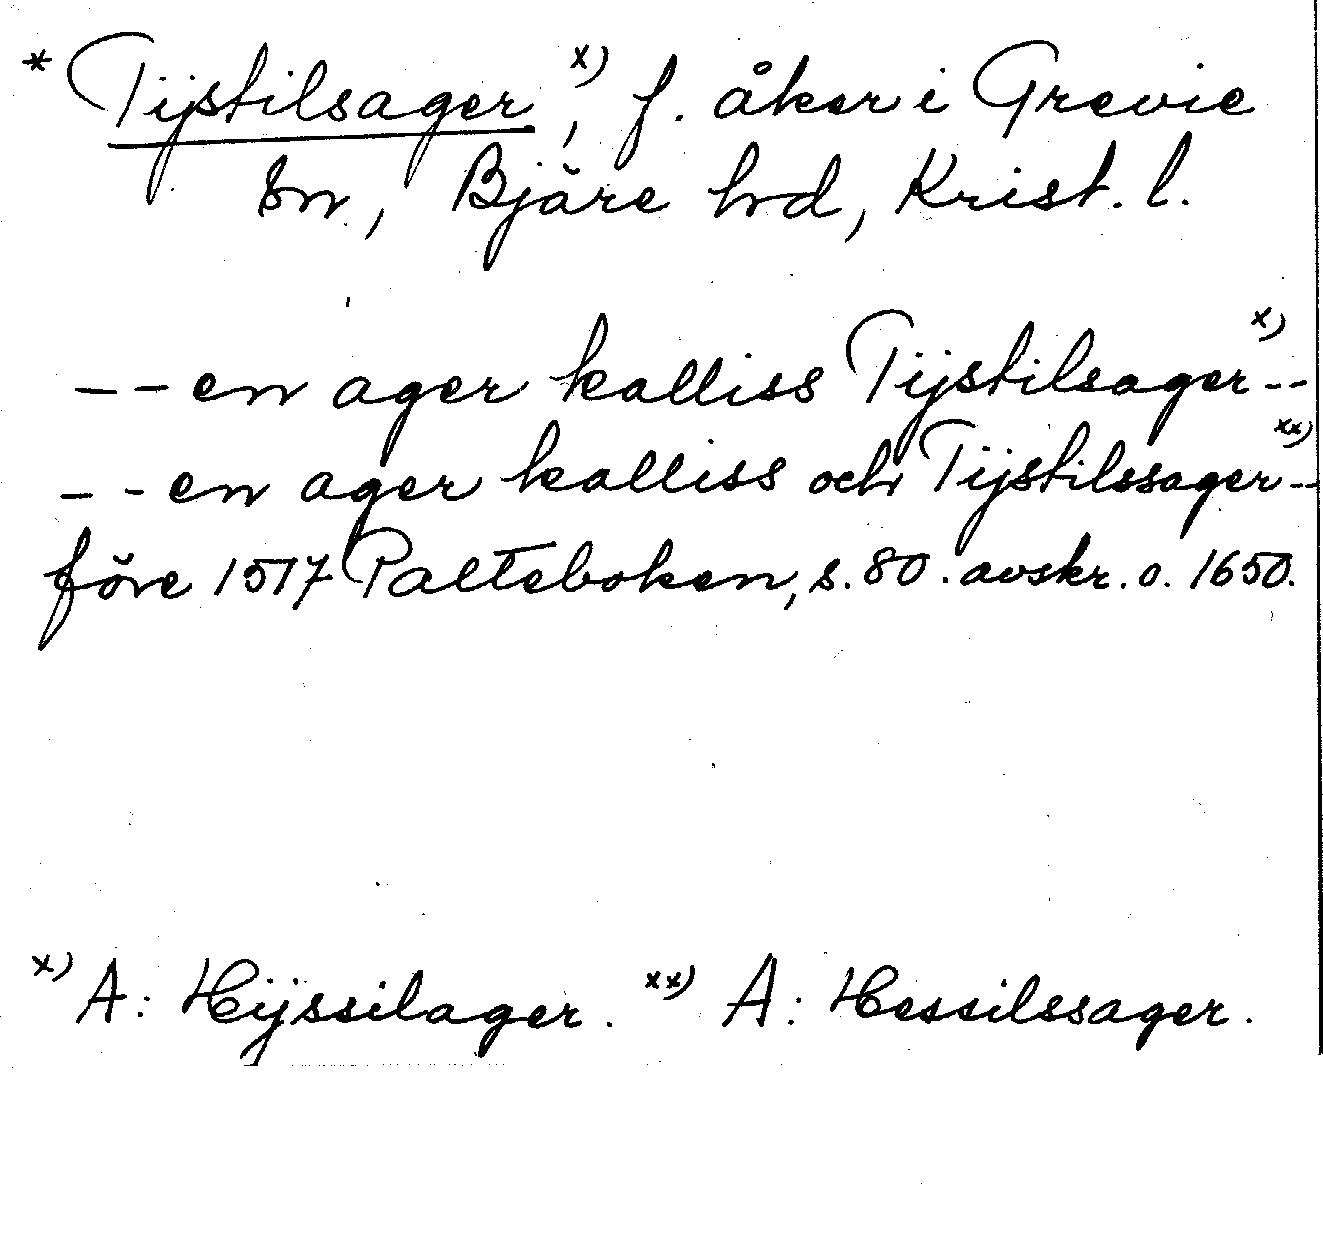 * Tijstilsager x), f. åker i Grevie
sn, Bjäre hd, Krist. l.
-- en ager kalliss Tijstilsager x) --
-- en ager kalliss och Tijstilssager xx) --
före 1517 Palteboken, s. 80. avskr. o. 1650.
x) A: Hijssilager. xx) A: Hessilssager.